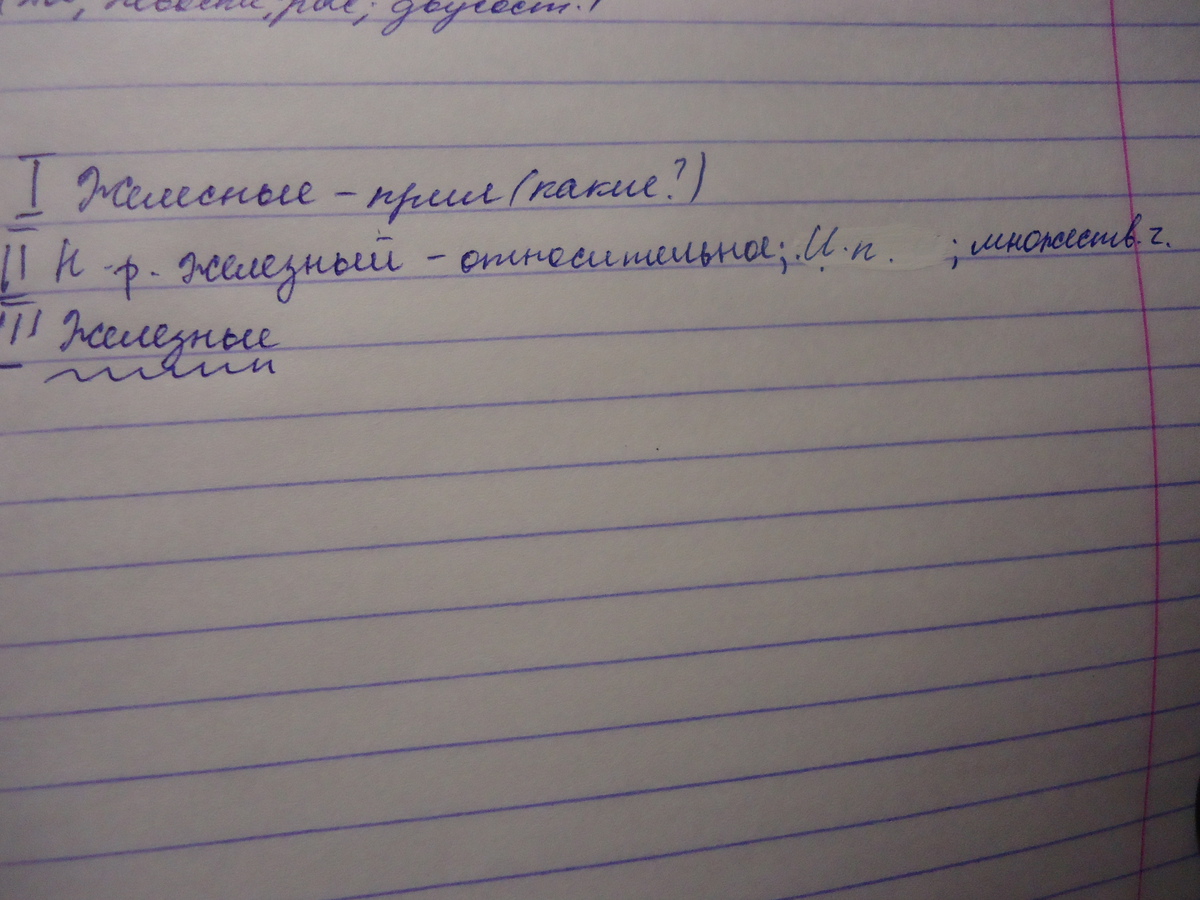 рас; двусост.)
I Желесные – прил (какие?)
II Н.р. железный – относительное; И.п. ; множеств.ч.
III Железные